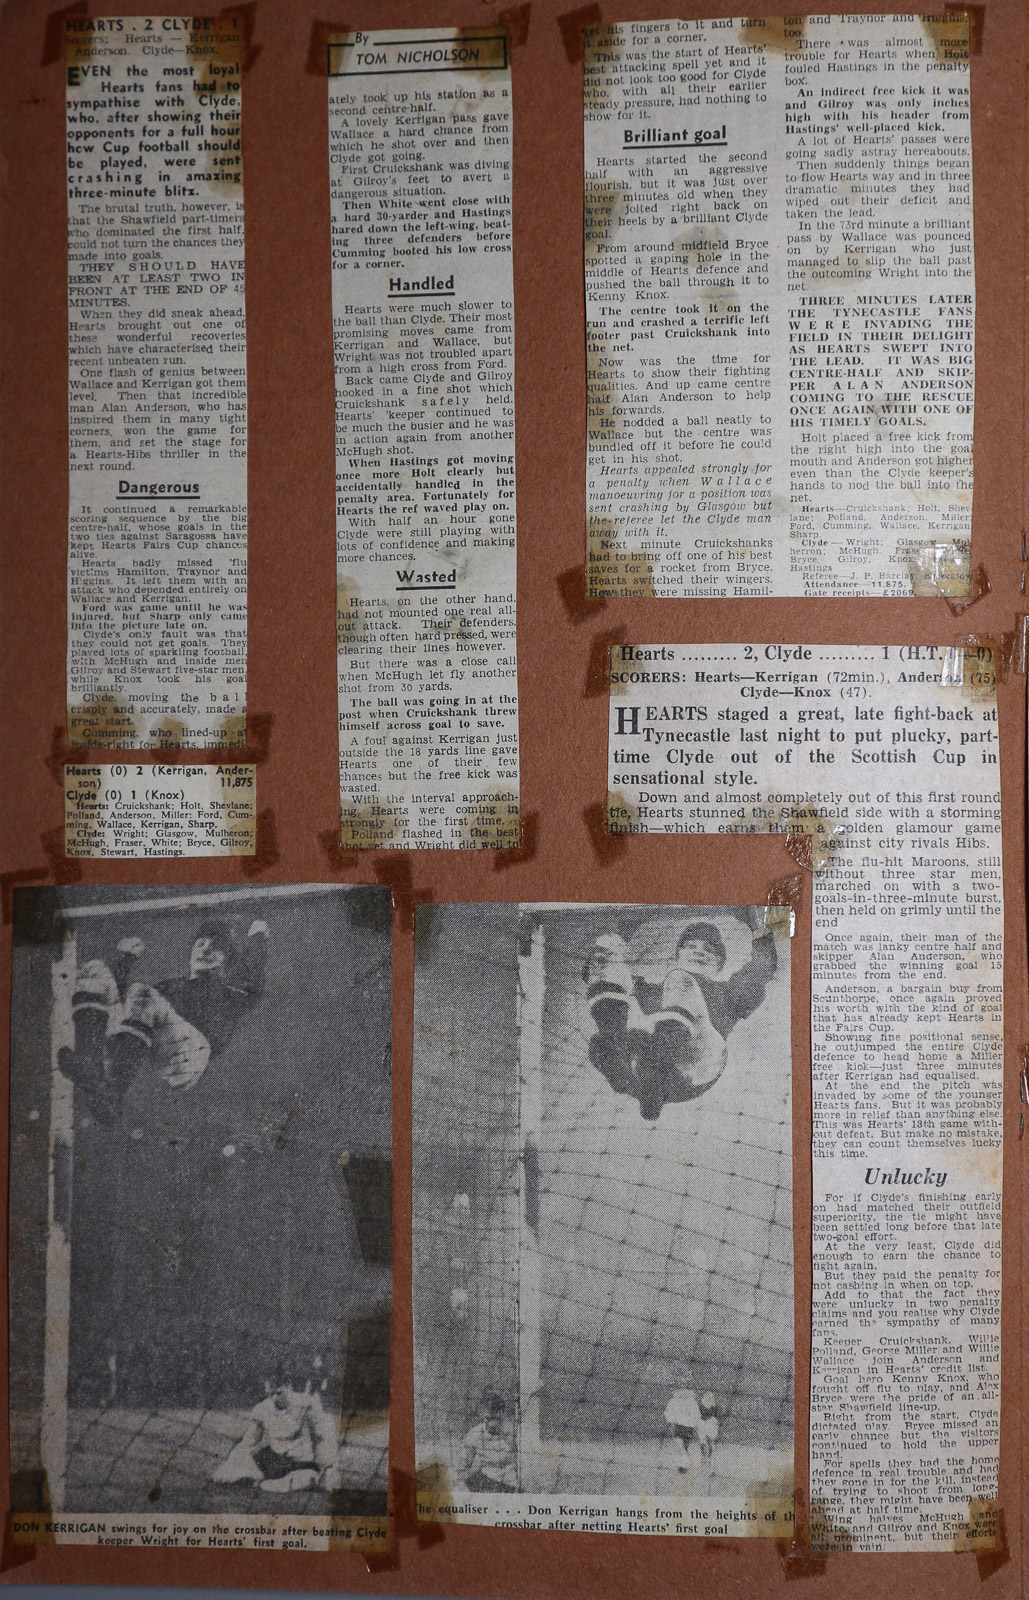 HEARTS . 2 CLYDE . 1
Scorers: Hearts — Kerrigan
Anderson. Clyde—Knox.
EVEN the most loyal
Hearts fans had to
sympathise with Clyde,
who, after showing their
opponents for a full hour
how Cup football should
be played, were sent
crashing in amazing
three-minute blitz.
The brutal truth, however, is
that the Shawfield part-timers
who dominated the first half,
could not turn the chances they
made into goals.
THEY SHOULD HAVE
BEEN AT LEAST TWO IN
FRONT AT THE END OF 45
MINUTES.
When they did sneak ahead,
Hearts brought out one of
these wonderful recoveries
which have characterised their
recent unbeaten run.
One flash of genius between
Wallace and Kerrigan got them
level. Then that incredible
man Alan Anderson, who has
inspired them in many tight
corners, won the game for
them, and set the stage for
a Hearts-Hibs thriller in the
next round.
Dangerous
It continued a remarkable
scoring sequence by the big
centre-half, whose goals in the
two ties against Saragossa have
kept Hearts Fairs Cup chances
alive.
Hearts badly missed 'flu
victims Hamilton, Traynor and
Higgins. It left them with an
attack who depended entirely on
Wallace and Kerrigan.
Ford was game until he was
injured, but Sharp only came
into the picture late on.
Clyde's only fault was that
they could not get goals. They
played lots of sparkling football,
with McHugh and inside men
Gilroy and Stewart five-star men
while Knox took his goal
brilliantly.
Clyde, moving the ball
crisply and accurately, made a
great start.
Cumming, who lined-up at
inside-right for Hearts, immedi
Hearts (0) 2 (Kerrigan, Ander-
son) 11,875
Clyde (0) 1 (Knox)
Hearts: Cruickshank; Holt, Shevlane;
Polland, Anderson, Miller; Ford, Cum-
ming, Wallace, Kerrigan, Sharp.
Clyde: Wright; Glasgow, Mulheron;
McHugh, Fraser, White; Bryce, Gilroy,
Knox, Stewart, Hastings.
By
TOM NICHOLSON
ately took up his station as a
second centre-half.
A lovely Kerrigan pass gave
Wallace a hard chance from
which he shot over and then
Clyde got going.
First Cruickshank was diving
at Gilroy's feet to avert a
dangerous situation.
Then White went close with
a hard 30-yarder and Hastings
hared down the left-wing, beat-
ing three defenders before
Cumming booted his low cross
for a corner.
Handled
Hearts were much slower to
the ball than Clyde. Their most
promising moves came from
Kerrigan and Wallace, but
Wright was not troubled apart
from a high cross from Ford.
Back came Clyde and Gilroy
hooked in a fine shot which
Cruickshank safely held.
Hearts' 'keeper continued to
be much the busier and he was
in action again from another
McHugh shot.
When Hastings got moving
once more Holt clearly but
accidentally handled in the
penalty area. Fortunately for
Hearts the ref waved play on.
With half an hour gone
Clyde were still playing with
lots of confidence and making
more chances.
Wasted
Hearts, on the other hand,
had not mounted one real all-
out attack. Their defenders,
though often hard pressed, were
clearing their lines however.
But there was a close call
when McHugh let fly another
shot from 30 yards.
The ball was going in at the
post when Cruickshank threw
himself across goal to save.
A foul against Kerrigan just
outside the 18 yards line gave
Hearts one of their few
chances but the free kick was
wasted.
With the interval approach-
ing, Hearts were coming in
strongly for the first time.
Polland flashed in the best
shot yet and Wright did well to
get his fingers to it and turn
it aside for a corner.
This was the start of Hearts'
best attacking spell yet and it
did not look too good for Clyde
who, with all their earlier
steady pressure, had nothing to
show for it.
Brilliant goal
Hearts started the second
half with an aggressive
flourish, but it was just over
three minutes old when they
were jolted right back on
their heels by a brilliant Clyde
goal.
From around midfield Bryce
spotted a gaping hole in the
middle of Hearts defence and
pushed the ball through it to
Kenny Knox.
The centre took it on the
run and crashed a terrific left
footer past Cruickshank into
the net.
Now was the time for
Hearts to show their fighting
qualities. And up came centre
half Alan Anderson to help
his forwards.
He nodded a ball neatly to
Wallace but the centre was
bundled off it before he could
get in his shot.
Hearts appealed strongly for
a penalty when Wallace
manoeuvring for a position was
sent crashing by Glasgow but
the referee let the Clyde man
away with it.
Next minute Cruickshanks
had to bring off one of his best
saves for a rocket from Bryce.
Hearts switched their wingers.
How they were missing Hamil-
ton and Traynor and Higgins,
too.
There was almost more
trouble for Hearts when Holt
fouled Hastings in the penalty
box.
An indirect free kick it was
and Gilroy was only inches
high with his header from
Hastings' well-placed kick.
A lot of Hearts' passes were
going sadly astray hereabouts.
Then suddenly things began
to flow Hearts way and in three
dramatic minutes they had
wiped out their deficit and
taken the lead.
In the 73rd minute a brilliant
pass by Wallace was pounced
on by Kerrigan who just
managed to slip the ball past
the outcoming Wright into the
net.
THREE MINUTES LATER
THE TYNECASTLE FANS
WERE INVADING THE
FIELD IN THEIR DELIGHT
AS HEARTS SWEPT INTO
THE LEAD. IT WAS BIG
CENTRE-HALF AND SKIP-
PER ALAN ANDERSON
COMING TO THE RESCUE
ONCE AGAIN WITH ONE OF
HIS TIMELY GOALS.
Holt placed a free kick from
the right high into the goal
mouth and Anderson got higher
even than the Clyde keeper's
hands to nod the ball into the
net.
Hearts—Cruickshank; Holt, Shev-
lane; Polland, Anderson, Miller;
Ford, Cumming, Wallace, Kerrigan,
Sharp.
Clyde — Wright; Glasgow, Mul
herron; McHugh, Fraser,
Bryce, Gilroy, Knox,
Hastings
Referee—J. P. Barclay, Kirkcaldy
Attendance—11,875.
Gate receipts—£2069.
Hearts ......... 2, Clyde ......... 1 (H.T. 0—0)
SCORERS: Hearts—Kerrigan (72min.), Anderson (75)
Clyde—Knox (47).
HEARTS staged a great, late fight-back at
Tynecastle last night to put plucky, part-
time Clyde out of the Scottish Cup in
sensational style.
Down and almost completely out of this first round
tie, Hearts stunned the Shawfield side with a storming
finish—which earns them a golden glamour game
against city rivals Hibs.
The flu-hit Maroons, still
without three star men,
marched on with a two-
goals-in-three-minute burst,
then held on grimly until the
end
Once again, their man of the
match was lanky centre half and
skipper Alan Anderson, who
grabbed the winning goal 15
minutes from the end.
Anderson, a bargain buy from
Scunthorpe, once again proved
his worth with the kind of goal
that has already kept Hearts in
the Fairs Cup.
Showing fine positional sense,
he outjumped the entire Clyde
defence to head home a Miller
free kick—just three minutes
after Kerrigan had equalised.
At the end the pitch was
invaded by some of the younger
Hearts fans. But it was probably
more in relief than anything else.
This was Hearts' 13th game with-
out defeat. But make no mistake,
they can count themselves lucky
this time.
Unlucky
For if Clyde's finishing early
on had matched their outfield
superiority, the tie might have
been settled long before that late
two-goal effort.
At the very least, Clyde did
enough to earn the chance to
fight again.
But they paid the penalty for
not cashing in when on top.
Add to that the fact they
were unlucky in two penalty
claims and you realise why Clyde
earned the sympathy of many
fans.
Keeper Cruickshank, Willie
Polland, George Miller and Willie
Wallace join Anderson and
Kerrigan in Hearts' credit list.
Goal hero Kenny Knox, who
fought off flu to play, and Alex
Bryce were the pride of an all-
star Shawfield line-up.
Right from the start, Clyde
dictated play. Bryce missed an
early chance but the visitors
continued to hold the upper
hand.
For spells they had the home
defence in real trouble and had
they gone in for the kill, instead
of trying to shoot from long-
range, they might have been well
ahead at half time.
Wing halves McHugh and
White, and Gilroy and Knox were
all prominent, but their efforts
were in vain
DON KERRIGAN swings for joy on the crossbar after beating Clyde
keeper Wright for Hearts' first goal.
The equaliser . . . Don Kerrigan hangs from the heights of th
crossbar after netting Hearts' first goal